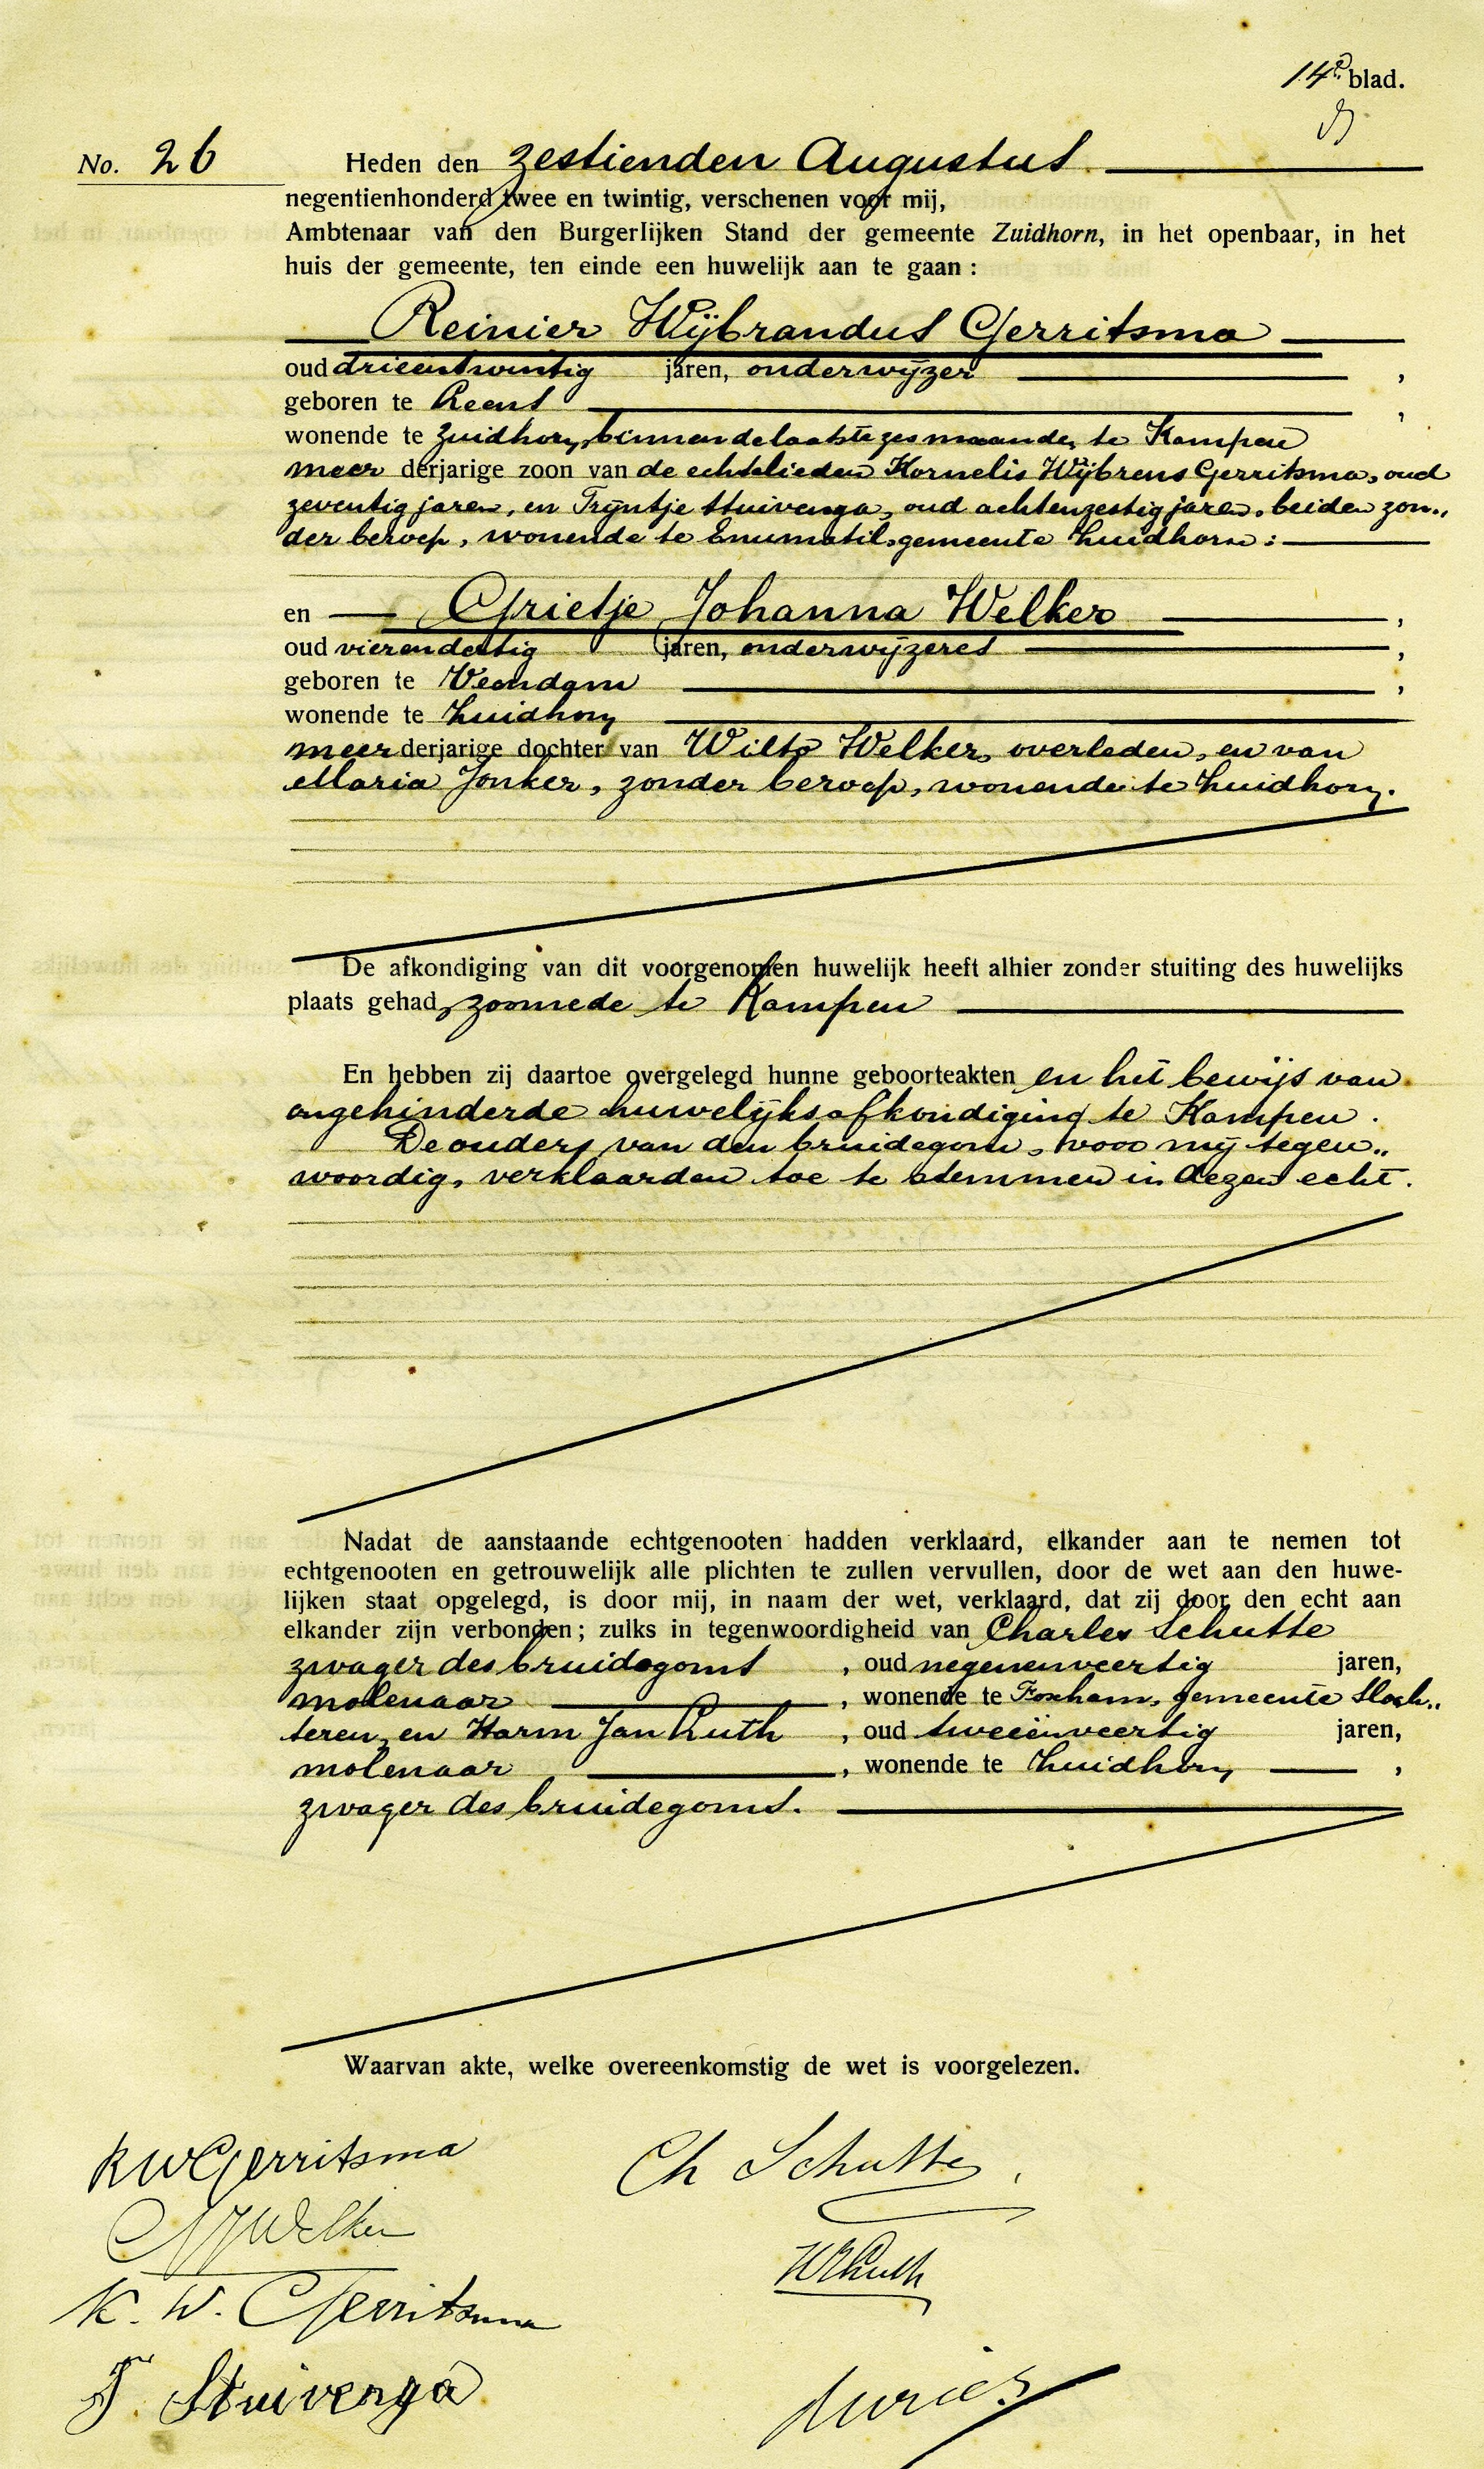 14e blad.
No. 26 Heden den zestienden Augustus
negentienhonderd twee en twintig, verschenen voor mij,
Ambtenaar van den Burgerlijken Stand der gemeente Zuidhorn, in het openbaar, in het
huis der gemeente, ten einde een huwelijk aan te gaan :
Reinier Wijbrandus Gerritsma
oud drieentwintig jaren, onderwijzer ,
geboren te Leens ,
wonende te Zuidhorn, binnen de laatste zes maanden te Kampen
meer derjarige zoon van de echtelieden Kornelis Wijbrens Gerritsma, oud
zeventig jaren, en Trijntje Stuivenga, oud achtenzestig jaren, beiden zon„
der beroep, wonende te Enumatil, gemeente Zuidhorn ;
en Grietje Johanna Welker ,
oud vierendertig jaren, onderwijzeres ,
geboren te Veendam ,
wonende te Zuidhorn
meer derjarige dochter van Wilto Welker, overleden, en van
Maria Jonker, zonder beroep, wonende te Zuidhorn.
De afkondiging van dit voorgenomen huwelijk heeft alhier zonder stuiting des huwelijks
plaats gehad, zoomede te Kampen
En hebben zij daartoe overgelegd hunne geboorteakten en het bewijs van
ongehinderde huwelijksafkondiging te Kampen.
De ouders van den bruidegom, voor mij tegen„
woordig, verklaarden toe te stemmen in dezen echt.
Nadat de aanstaande echtgenooten hadden verklaard, elkander aan te nemen tot
echtgenooten en getrouwelijk alle plichten te zullen vervullen, door de wet aan den huwe-
lijken staat opgelegd, is door mij, in naam der wet, verklaard, dat zij door den echt aan
elkander zijn verbonden ; zulks in tegenwoordigheid van Charles Schutte
zwager des bruidegoms , oud negenenveertig jaren,
molenaar , wonende te Foxham, gemeente Sloch„
teren, en Harm Jan Luth , oud tweeënveertig jaren,
molenaar , wonende te Zuidhorn ,
zwager des bruidegoms.
Waarvan akte, welke overeenkomstig de wet is voorgelezen.
RWGerritsma Ch Schutte
GJWelker
HJLuth
K. W. Gerritsma
T. Stuivenga